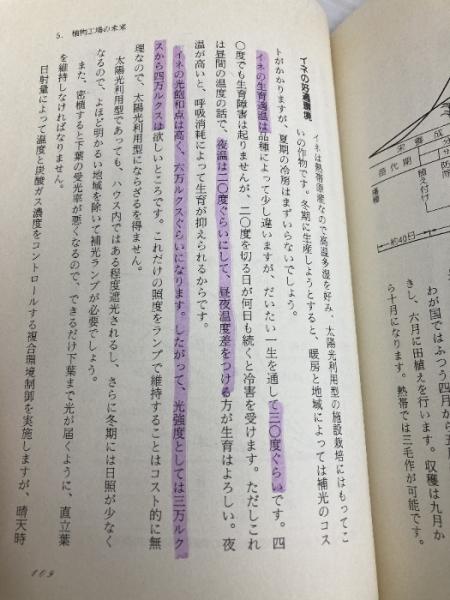 5. 植物工場の未来
イネの好適環境
イネは熱帯原産なので高温多湿を好み、太陽光利用型の施設栽培にはもってこ
いの作物です。冬期に生産しようとすると、暖房と地域によっては補光のコス
トがかかりますが、夏期の冷房はまずいらないでしょう。
イネの生育適温は品種によって少し違いますが、だいたい一生を通して三〇度ぐらいです。四
〇度でも生育障害は起りませんが、二〇度を切る日が何日も続くと冷害を受けます。ただしこれ
は昼間の温度の話で、夜温は二〇度ぐらいにして、昼夜温度差をつける方が生育はよろしい。夜
温が高いと、呼吸消耗によって生育が抑えられるからです。
イネの光飽和点は高く、六万ルクスぐらいになります。したがって、光強度としては三万ルク
スから四万ルクスは欲しいところです。これだけの照度をランプで維持することはコスト的に無
理なので、太陽光利用型にならざるを得ません。
太陽光利用型であっても、ハウス内ではある程度遮光されるし、さらに冬期には日照が少なく
なるので、よほど明かるい地域を除いて補光ランプが必要でしょう。
また、密植すると下葉の受光率が悪くなるので、できるだけ下葉まで光が届くように、直立葉
を維持しなければなりません。
日射量によって温度と炭酸ガス濃度をコントロールする複合環境制御を実施しますが、晴天時
109
成
苗代期
播種
植え付け
約40日
わが国ではふつう四月から五
きし、六月に田植えを行います。収穫は九月か
ら十月になります。熱帯では三毛作が可能です。